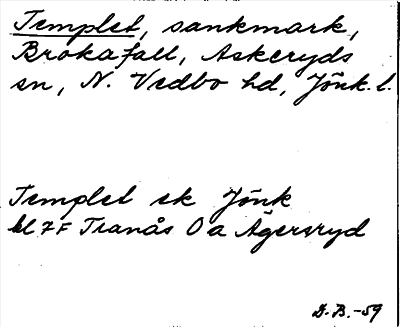 Templet, sankmark,
Brokafall, Askeryds
sn, N. Vedbo hd, Jönk. l.
Templet ek Jönk
bl 7F Tranås O a Ägersryd
D.B.-59